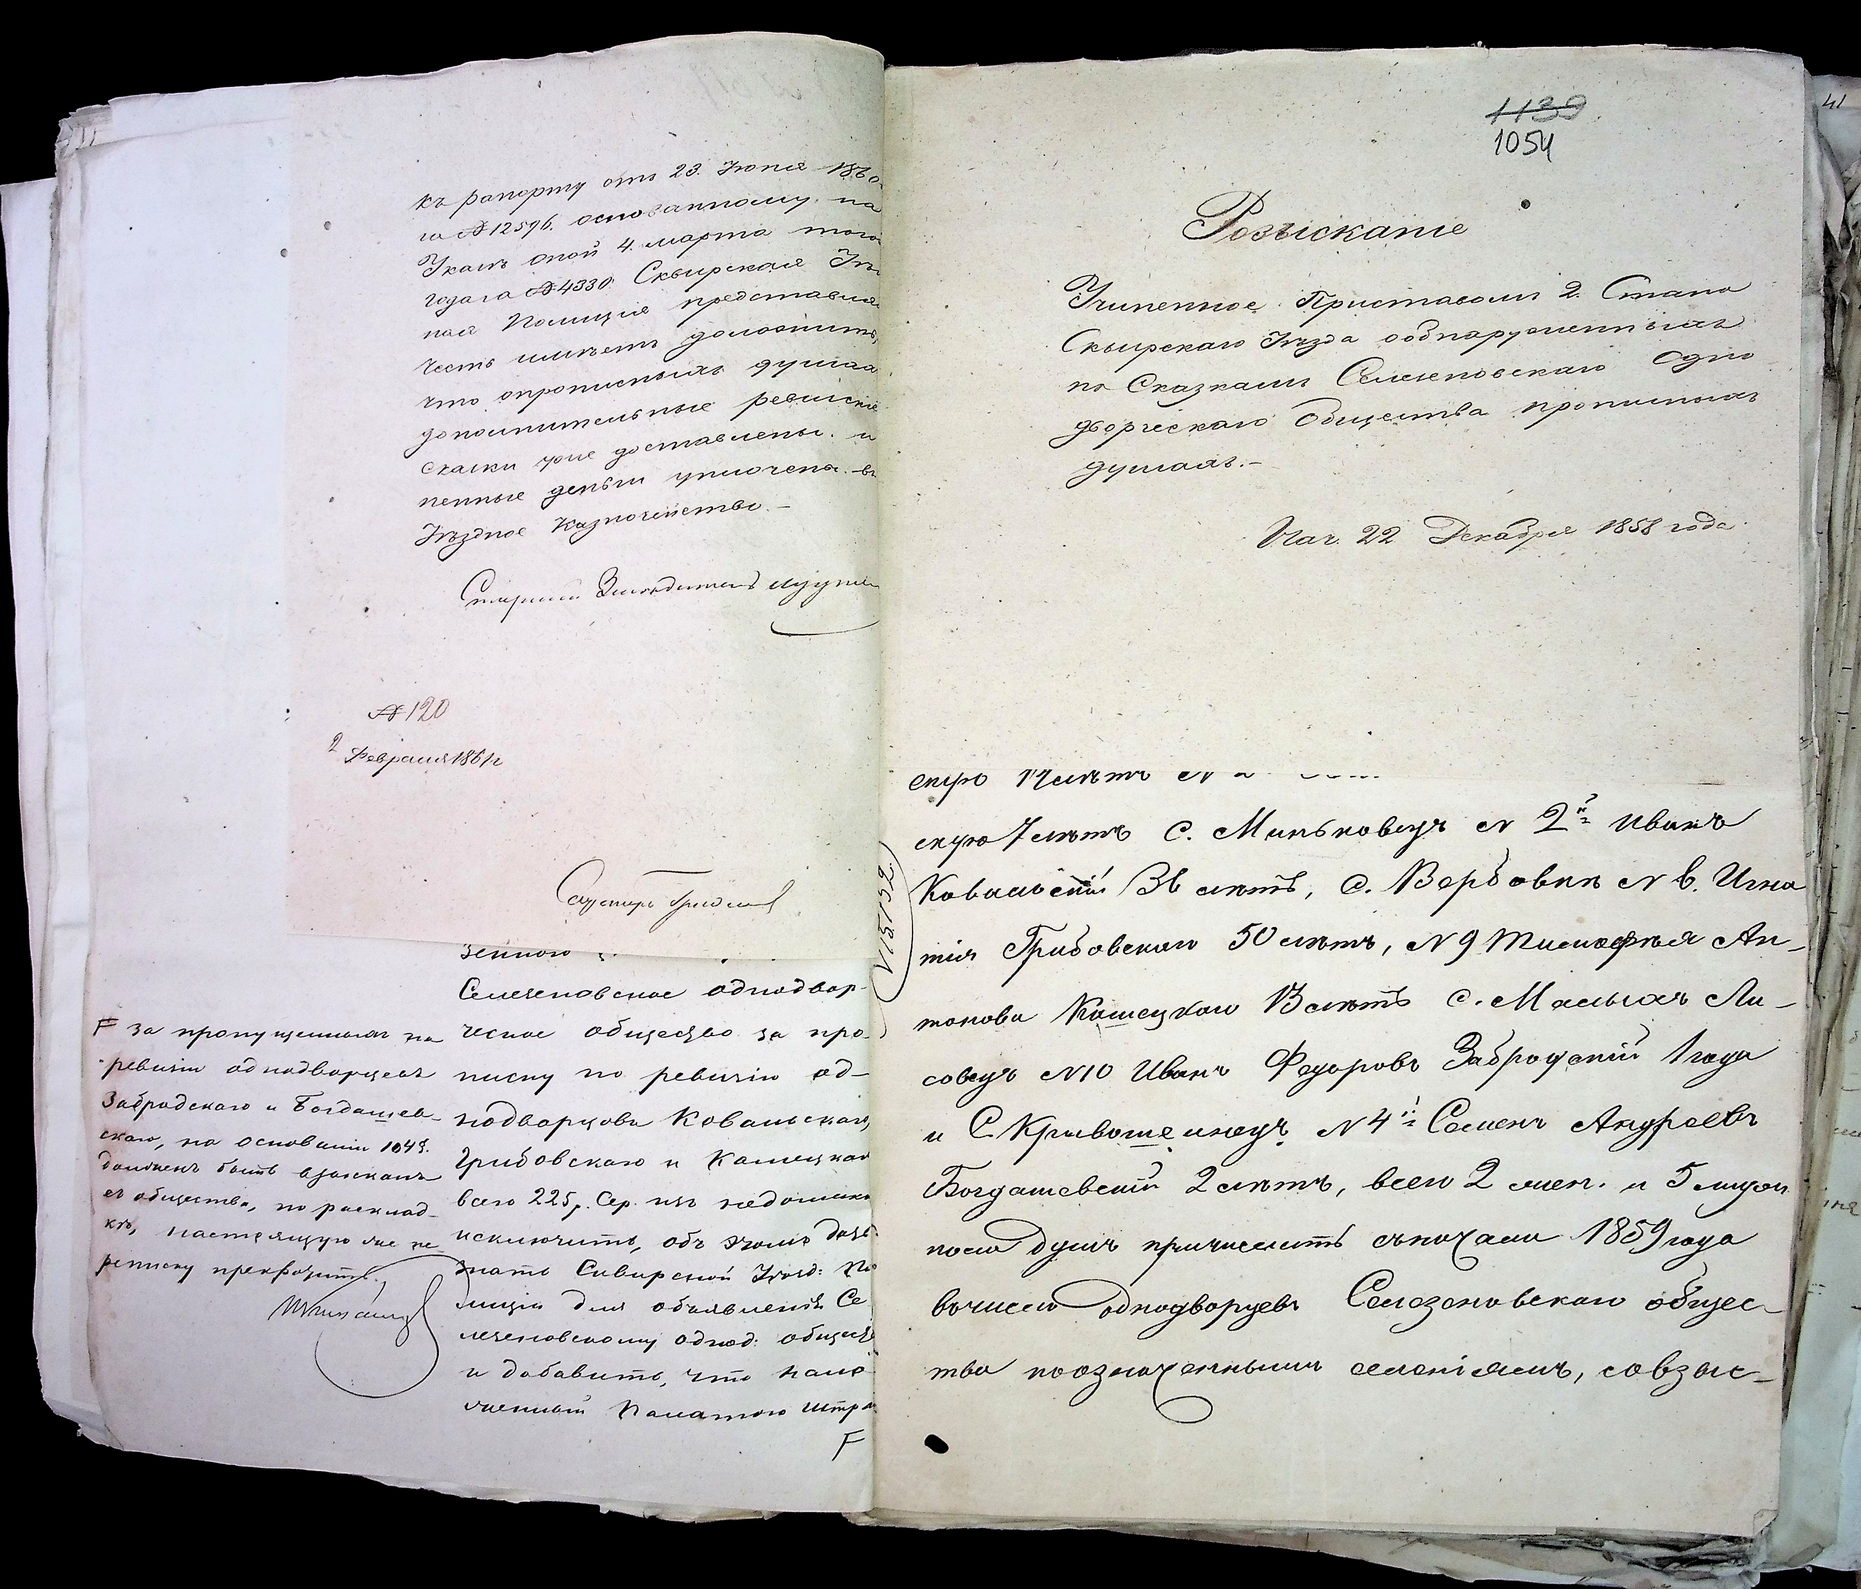 къ рапорту отъ 23. Іюня 1860
за № 12596. основанному на
Указѣ оной 4. марта того
года за № 4330 Сквирская Уѣзд
ная Полиція представляя
честь имѣетъ доложить,
что опрописныхъ душах
дополнительные ревизскіе
сказки уже доставлены. и
пенные деньги уплочены въ
Уѣздное Казначейство.
Старшій Засѣдатель
№ 120
2 Февраля 1861 г
Селезеновское однодвор-
ческое общество за про-
писку по ревизіи од-
нодворцовъ Ковальскаго,
Грибовскаго и Кашецкаго
всего 225 р. сер. изъ недоимки
исключить, объ этомъ дать
знать Сквирской Уѣзд: По
лиціи для объявленія Се
лезеновскому однод: общест
и добавить, что нало
женный Палатою штра
F
F за пропущенныхъ на
ревизіи однодворцевъ
Забродскаго и Богдашев-
скаго, на основаніи 1043.
долженъ быть взысканъ
съ общества, по расклад-
кѣ, настоящую же пе
реписку прекратить.
1139
1054
Розысканіе
Учиненное Приставомъ 2. Стана
Сквирскаго Уѣзда обнаруженныхъ
по Сказкамъ Селезеновскаго Одно
дворческаго Общества прописныхъ
душахъ.-
Нач. 22 Декабря 1858 года
скую 7 лѣтъ с. Миньковецъ № 2й Иванъ
Ковальскій 36 лѣтъ, с. Вербовки № 6. Игна
тія Грибовскаго 50 лѣтъ, № 9 Тимофѣя Ан-
тонова Кашецкаго 13 лѣтъ с. Малыхъ Ли-
совецъ № 10 Иванъ Федоровъ Забродскій 1 года
и С. Кривошеинецъ № 4й Семенъ Андреевъ
Богдашевскій 2 лѣтъ, всего 2 жен. и 5 муж
пола душъ причислить съ начала 1859 года
въ число однодворцевъ Селезеновскаго общес-
тва по означеннымъ селеніямъ, со взыс-